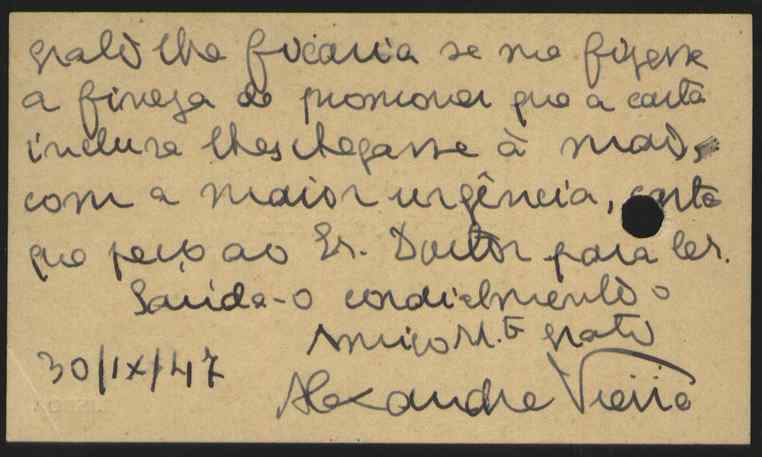 grato lhe ficaria se me fizesse
a fineza de promover que a carta
inclusa lhes chegasse à mão,
com a maior urgência, carta
que peço ao Sr. Doutor para ler.
Saúda-o cordialmente o
Amigo M.to grato
30/IX/47
Alexandre Vieira